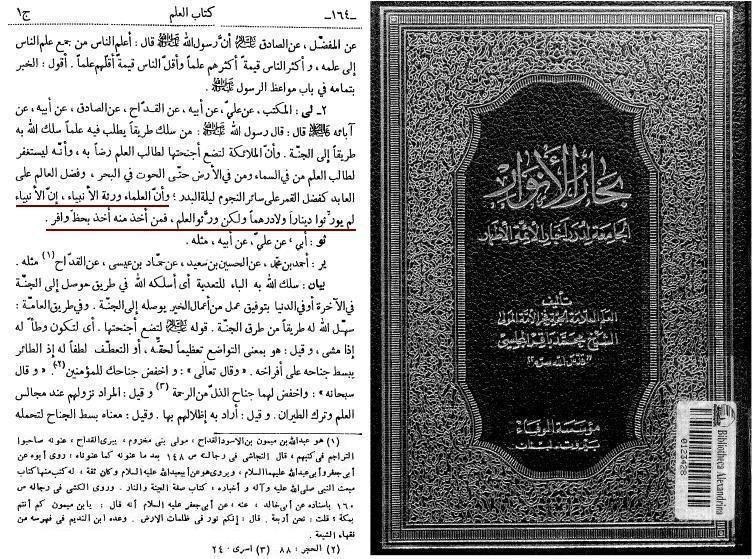 ـ١٦٤ـ
كتاب العلم
ج١
عن المفضّل ، عن الصادق ﷺ أنّ رسول الله ﷺ قال : أعلم الناس من جمع علم الناس
إلى علمه ، وأكثر الناس قيمةً أكثرهم علماً وأقلّ الناس قيمةً أقلّهم علماً . أقول : الخبر
بتمامه في باب مواعظ الرسول ﷺ .
٢ـ لى : المكتب ، عن عليّ ، عن أبيه ، عن القدّاح ، عن الصادق ، عن أبيه ، عن
آبائه قال : قال رسول الله ﷺ : من سلك طريقاً يطلب فيه علماً سلك الله به
طريقاً إلى الجنّة . وأنّ الملائكة لتضع أجنحتها لطالب العلم رضاً به ، وأنّه ليستغفر
لطالب العلم من في السماء ومن في الأرض حتّى الحوت في البحر ، وفضل العالم على
العابد كفضل القمر على سائر النجوم ليلة البدر ؛ وأنّ العلماء ورثة الأنبياء ، إنّ الأنبياء
لم يورّثوا ديناراً ولا درهماً ولكن ورّثوا العلم ، فمن أخذ منه أخذ بحظّ وافر .
ثو : أبي ، عن عليّ ، عن أبيه ، مثله .
ير : أحمد بن محمّد ، عن الحسين بن سعيد ، عن حمّاد بن عيسى ، عن القدّاح (١) مثله .
بيان : سلك الله به الباء للتعدية أي أسلكه الله في طريق موصل إلى الجنّة
في الآخرة أو في الدنيا بتوفيق عمل من أعمال الخير يوصله إلى الجنّة . وفي طريق العامّة :
سهّل الله له طريقاً من طرق الجنّة . قوله ﷺ لتضع أجنحتها . أي لتكون وطأً له
إذا مشى ، وقيل : هو بمعنى التواضع تعظيماً لحقّه ، أو التعطّف لطفاً له إذ الطائر
يبسط جناحه على أفراخه . «وقال تعالى» : واخفض جناحك للمؤمنين (٢) . «وقال
سبحانه» : واخفض لهما جناح الذلّ من الرحمة (٣) وقيل : المراد نزولهم عند مجالس
العلم وترك الطيران . وقيل : أراد به إظلالهم بها . وقيل : معناه بسط الجناح لتحمله
(١) هو عبدالله بن ميمون بن الاسود القداح ، مولى بني مخزوم ، يبرى القداح ، عنونه صاحبوا
التراجم في كتبهم ، قال النجاشي في رجاله ص ١٤٨ بعد ما عنونه كما عنوناه ، روى أبوه عن
أبي جعفر وأبي عبدالله عليهما السلام ، ويروى هو عن أبي عبدالله عليه السلام وكان ثقة ، له كتب منها كتاب
مبعث النبي صلى الله عليه وآله وأخباره ، كتاب صفة الجنة والنار . وروى الكشي في رجاله ص
١٦٠ باسناده عن أبي خالد ، عنه ، عن أبي جعفر عليه السلام أنه قال : يا بن ميمون كم أنتم
بمكة ؟ قلت : نحن أربعة . قال : إنكم نور في ظلمات الارض . وعده ابن النديم في فهرسه من
فقهاء الشيعة .
(٢) الحجر : ٨٨ (٣) اسرى : ٢٤
بحار الأنوار
الجامعة لدرر أخبار الأئمة الأطهار
تأليف
العلم العلامة الحجة فخر الأمة المولى
الشيخ محمد باقر المجلسي
"قدس الله سره"
مؤسسة الوفاء
بيروت - لبنان
Bibliotheca Alexandrina
0123428